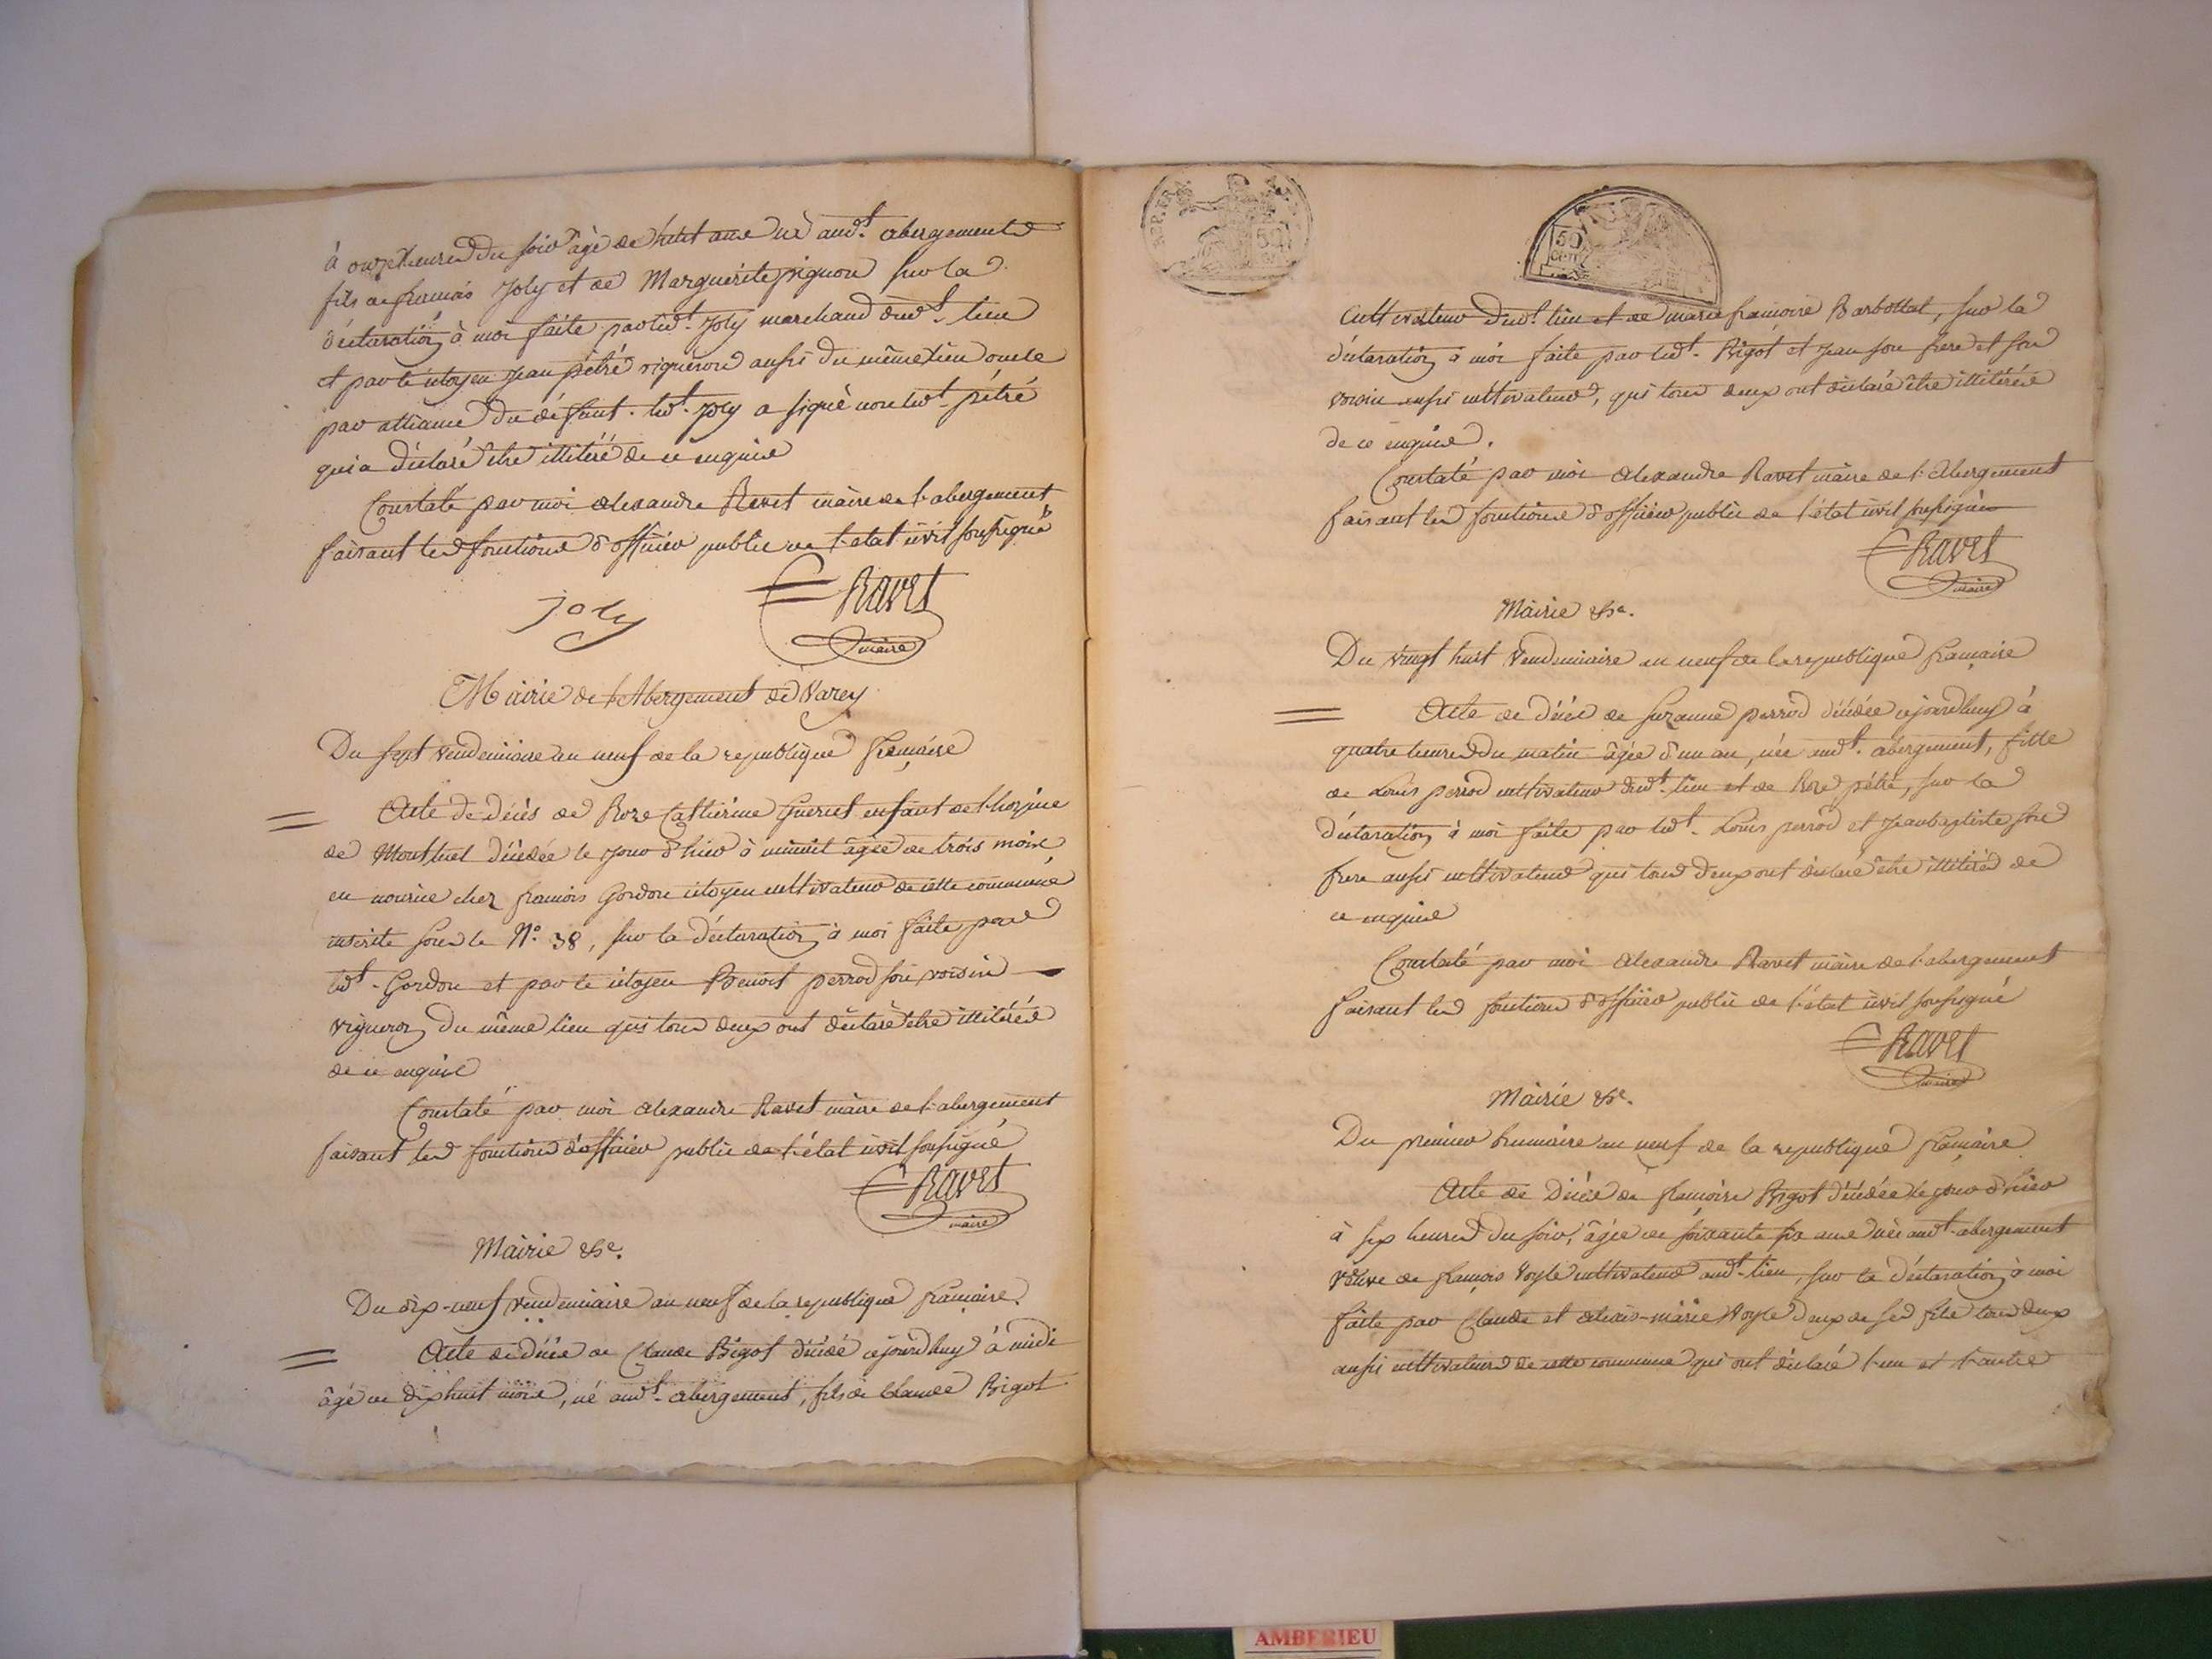 à onze heures du soir âgé de huit ans né aud.t abergement
fils de françois Joly et de Marguerite pignon sur la
déclaration à moi faite par led.t Joly marchand dud.t lieu
et par le citoyen Jean pétré vigneron aussi du même lieu oncle
par alliance du défunt. led.t Joly a signé non led.t pétré
qui a déclaré être illitéré de ce enquis
Constaté par moi alexandre Ravet maire de l'abergement
faisant les fonctions d'officier public de l'etat civil soussigné
joly
Ravet
maire
Mairie de l'Abergement de Varey
Du sept vendemiaire an neuf de la republique françoise
Acte de décès de Roze Catherine Guerut enfant de l'hospice
de Montluel décédée le jour d'hier à minuit âgée de trois mois
en nourice chez françois Gordon citoyen cultivateur de cette commune
inscrite sous le N.o 38, sur la déclaration à moi faite par
led.t Gordon et par le citoyen Benoit perrod son voisin
vigneron du même lieu qui tous deux ont déclaré être illitérés
de ce enquis
Constaté par moi alexandre Ravet maire de l'abergement
faisant les fonctions d'officier public de l'état civil soussigné
Ravet
maire
Mairie &c.
Du dix-neuf vendemiaire an neuf de la republique françoise.
Acte de décès de Claude Bigot décédé cejourdhuy à midi
âgé de dix huit mois, né aud.t abergement, fils de Claude Bigot
REP. FRA.
50
50
CENT.
cultivateur dud.t lieu et de marie françoise Barbollat, sur la
déclaration à moi faite par led.t Bigot et Jean son frere et son
voisin aussi cultivateurs, qui tous deux ont déclaré être illitérés
de ce enquis.
Constaté par moi alexandre Ravet maire de l'Abergement
faisant les fonctions d'officier public de l'état civil soussigné
Ravet
maire
Mairie &c.
Du vingt huit Vendemiaire an neuf de la republique françoise
Acte de décès de Suzanne perrod décédée cejourdhuy à
quatre heures du matin âgée d'un an, née aud.t abergement, fille
de Louis perrod cultivateur dud.t lieu et de Roze pétré, sur la
déclaration à moi faite par led.t Louis perrod et Jeanbaptiste son
frere aussi cultivateurs qui tous deux ont déclaré être illitérés de
ce enquis
Constaté par moi alexandre Ravet maire de l'abergement
faisant les fonctions d'officier public de l'état civil soussigné
Ravet
maire
Mairie &c.
Du premier brumaire an neuf de la republique françoise.
Acte de Décès de françoise Bigot décédée le jour d'hier
à six heures du soir, âgée de soixante six ans née aud.t abergement
veuve de françois Voyle cultivateur aud.t lieu, sur la déclaration à moi
faite par Claude et marie Voyle deux de ses fils tous deux
aussi cultivateurs de cette commune qui ont déclaré l'un et l'autre
AMBERIEU